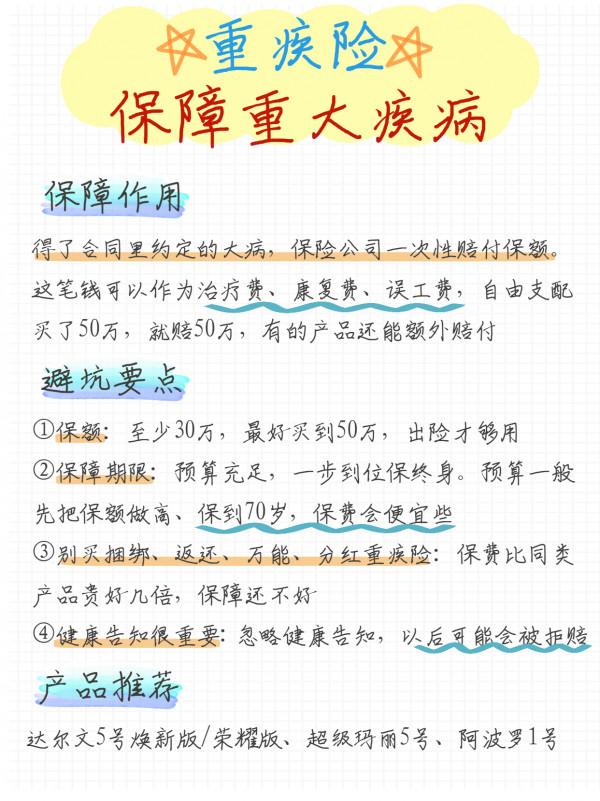 重疾险
保障重大疾病
保障作用
得了合同里约定的大病，保险公司一次性赔付保额。
这笔钱可以作为治疗费、康复费、误工费，自由支配
买了50万，就赔50万，有的产品还能额外赔付
避坑要点
①保额：至少30万，最好买到50万，出险才够用
②保障期限：预算充足，一步到位保终身。预算一般
先把保额做高、保到70岁，保费会便宜些
③别买捆绑、返还、万能、分红重疾险：保费比同类
产品贵好几倍，保障还不好
④健康告知很重要：忽略健康告知，以后可能会被拒赔
产品推荐
达尔文5号焕新版/荣耀版、超级玛丽5号、阿波罗1号